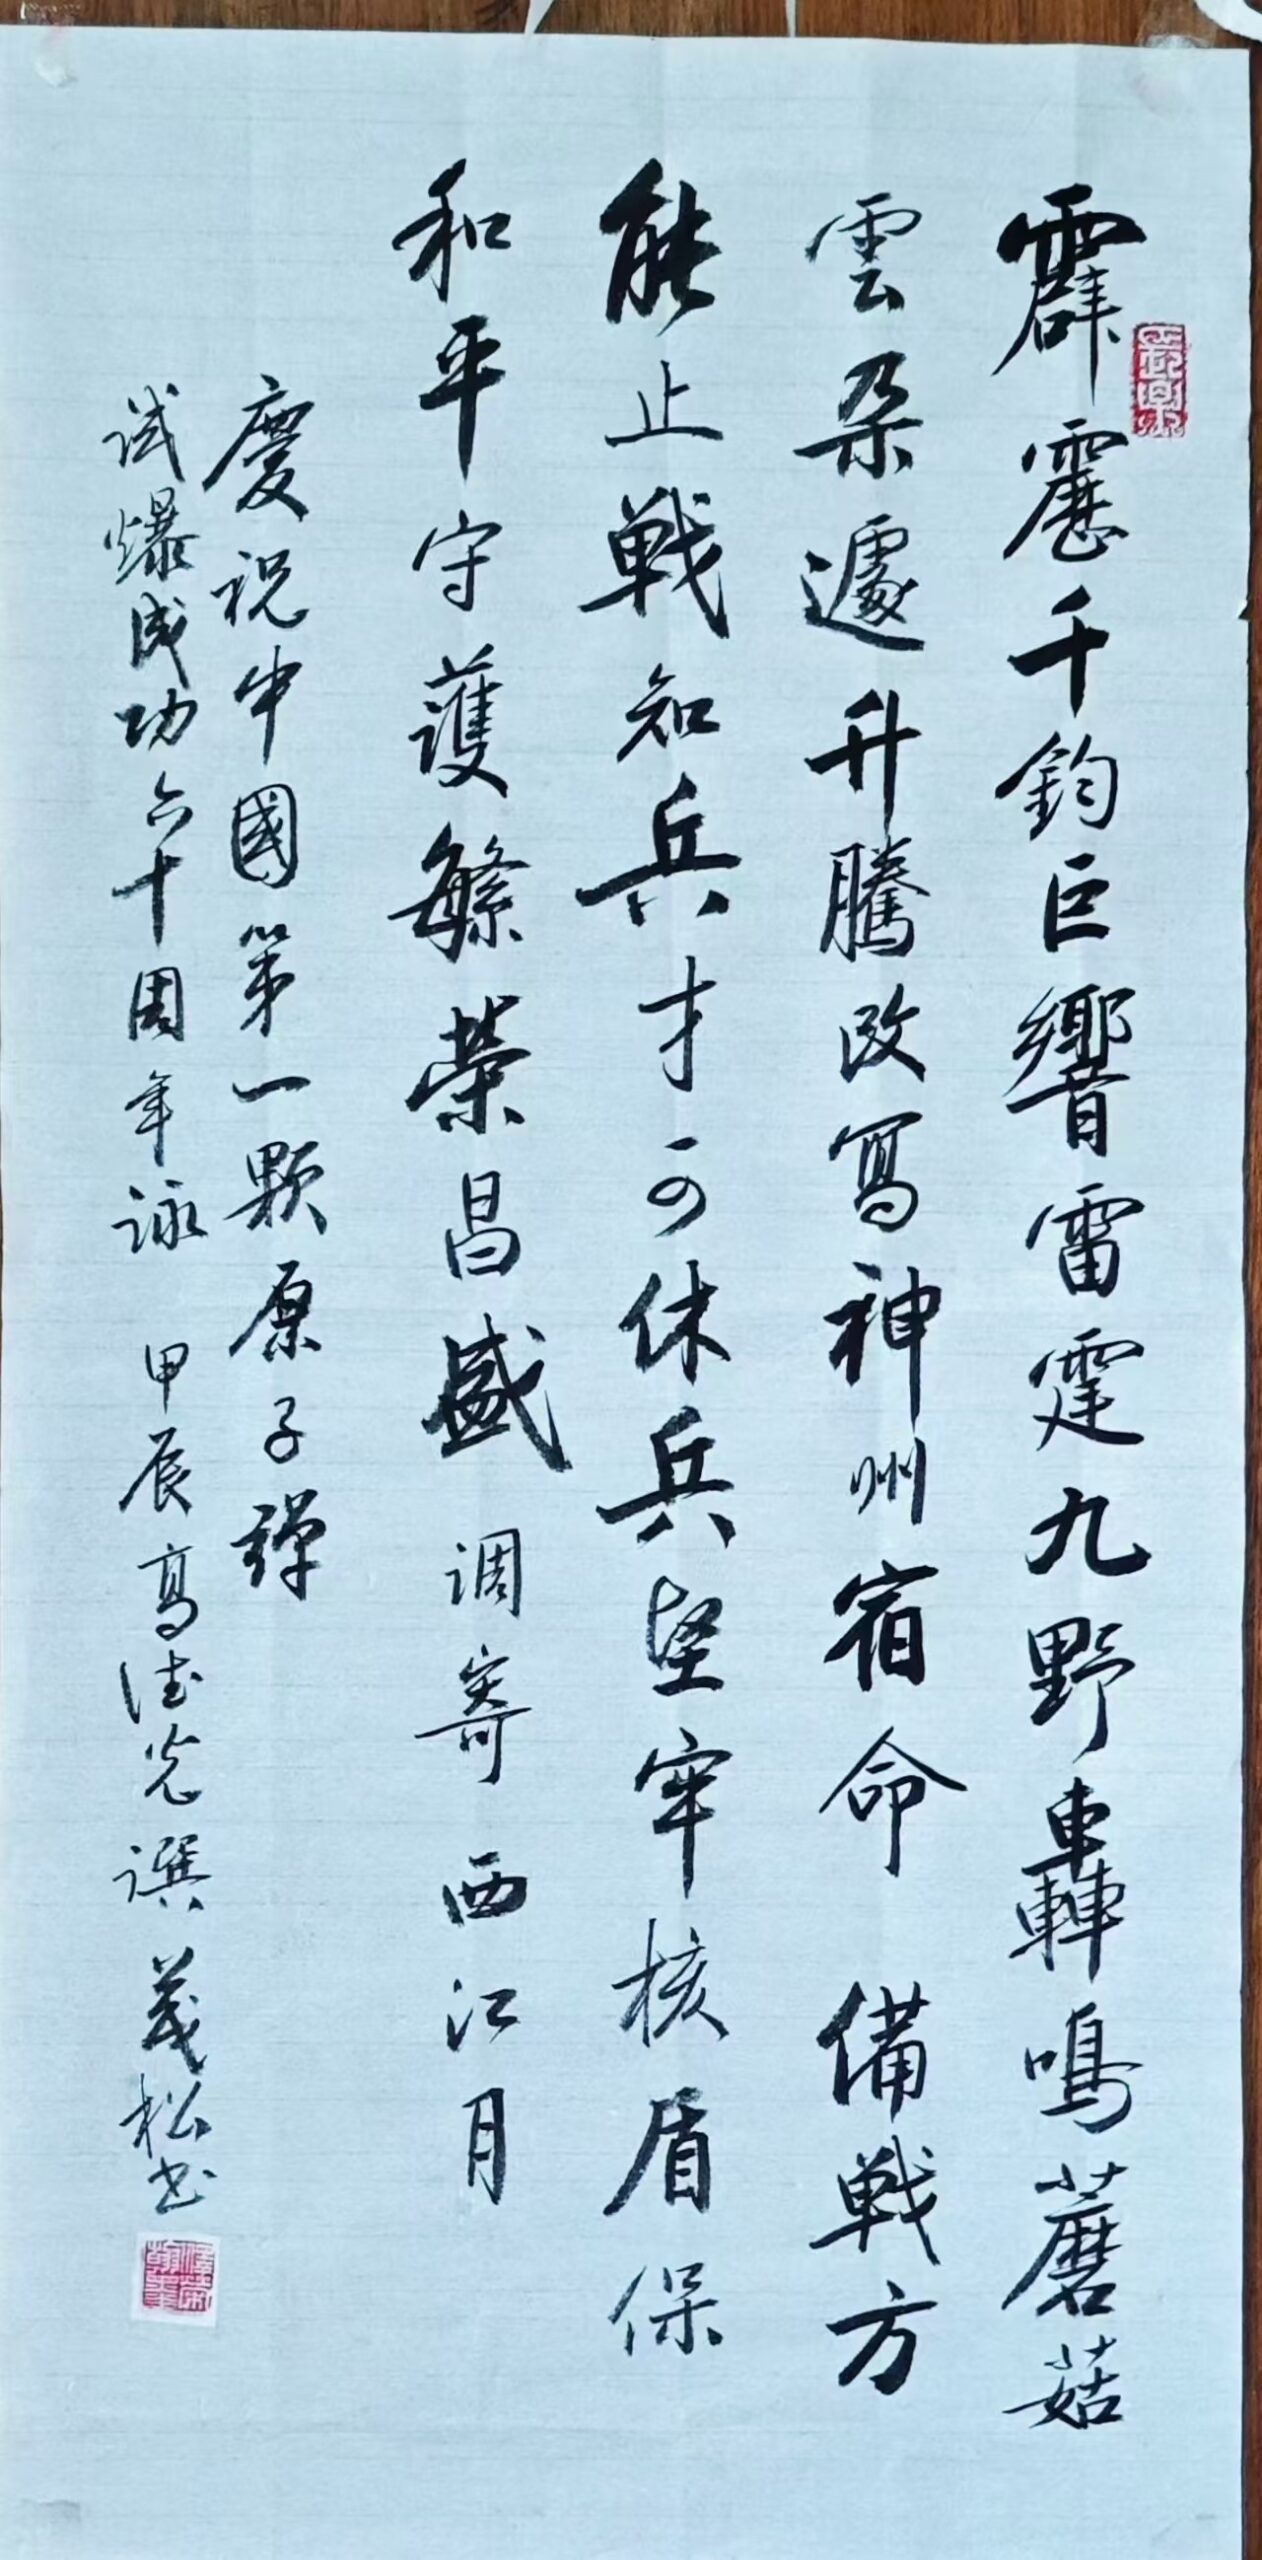 霹靂千鈞巨響雷霆九野轟鳴蘑菇
雲朵遽升騰改寫神州宿命 備戰方
能止戰知兵才可休兵堅牢核盾保
和平守護繁榮昌盛 调寄西江月
慶祝中國第一颗原子彈
试爆成功六十周年詠 甲辰高德光撰 茂松书